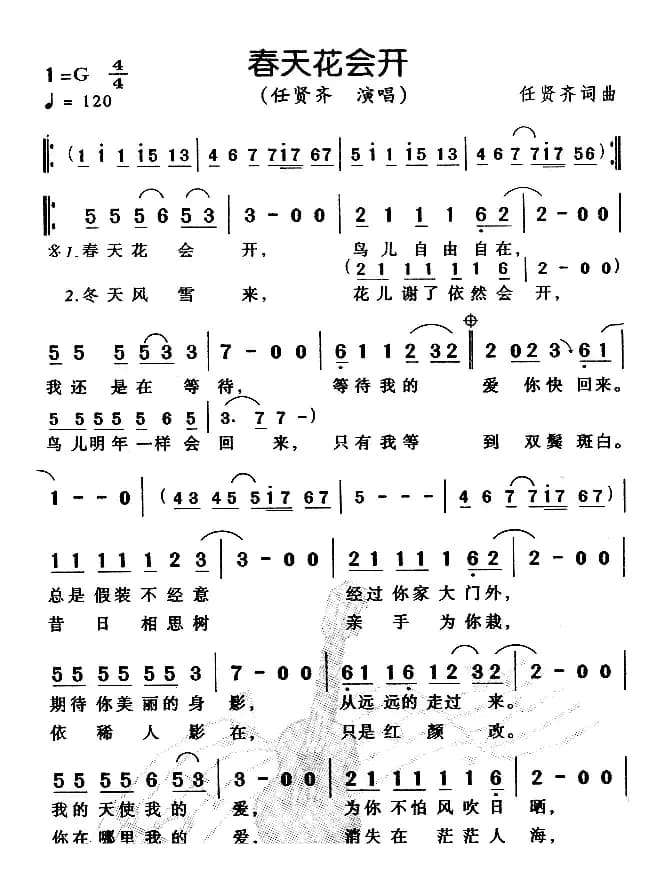 春天花会开
1=G 4/4
♩= 120
(任贤齐 演唱)
任贤齐 词曲
𝄆 (1 i 1 i5 13 | 4 6 7 7i7 67 | 5 i 1 i5 13 | 4 6 7 7i7 56) 𝄇
5 5 5 6 5 3 | 3 - 0 0 | 2 1 1 1 6 2 | 2 - 0 0
1.春天花 会 开, 鸟儿 自由 自在,
(2 1 1 1 1 1 1 6 | 2 - 0 0)
2.冬天风 雪 来, 花儿谢了依然会 开,
5 5 5 5 3 3 | 7 - 0 0 | 6 1 1 2 3 2 | 2 0 2 3 6 1
我还 是在 等待, 等待我的 爱 你快 回来。
5 5 5 5 5 6 5 | 3. 7 7 -)
鸟儿明年一样会 回 来, 只有我等 到 双鬓 斑白。
1 - - 0 | (43 45 5i7 67 | 5 - - - | 4 6 7 7i7 67)
1 1 1 1 1 2 3 | 3 - 0 0 | 2 1 1 1 1 1 6 2 | 2 - 0 0
总是 假装 不经意 经过 你家 大 门外,
昔日 相思树 亲 手 为你栽,
5 5 5 5 5 5 5 3 | 7 - 0 0 | 6 1 1 6 1 2 3 2 | 2 - 0 0
期待 你美丽的 身 影, 从远 远的 走过 来。
依稀 人 影在, 只是 红 颜 改。
5 5 5 5 5 6 5 3 | 3 - 0 0 | 2 1 1 1 1 1 1 6 | 2 - 0 0
我的 天使 我的 爱, 为你 不怕 风吹 日 晒,
你在 哪里 我的 爱, 消失在 茫茫 人 海,